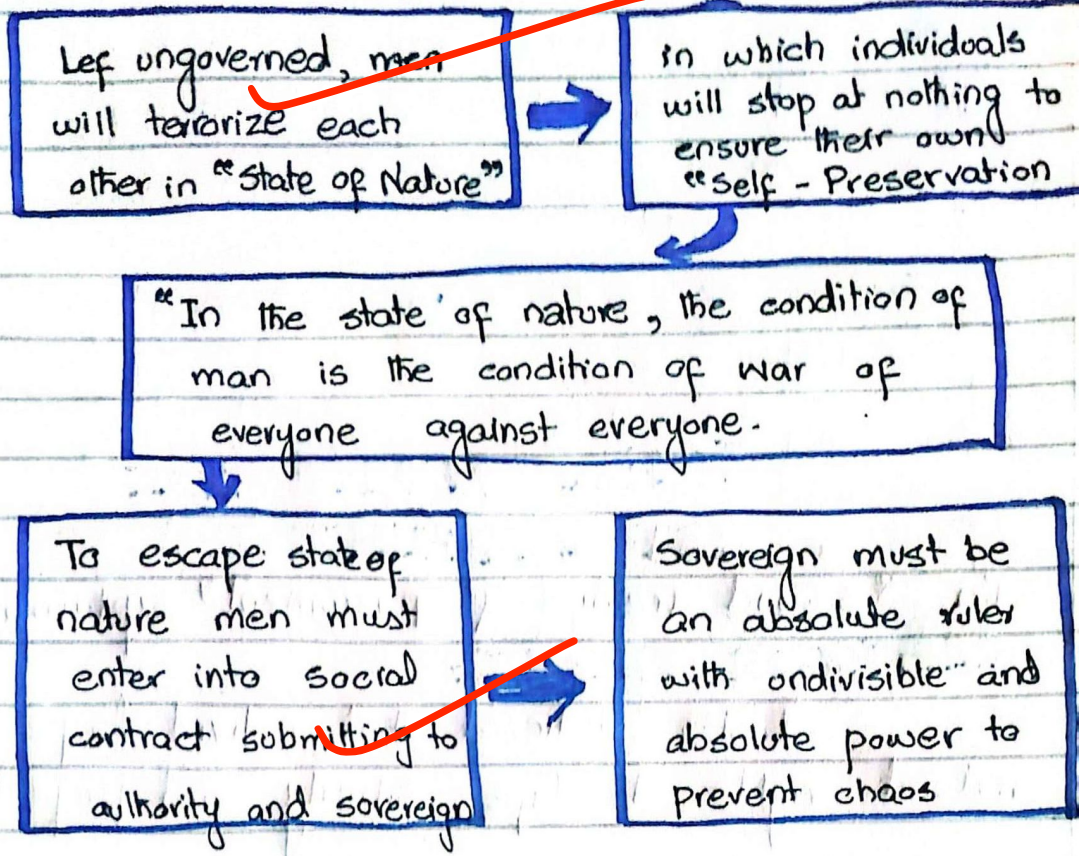 Lef ungoverned, men
will terrorize each
other in "State of Nature"
in which individuals
will stop at nothing to
ensure their own
"Self - Preservation
"In the state of nature, the condition of
man is the condition of war of
everyone against everyone.
To escape state of
nature men must
enter into social
contract submitting to
authority and sovereign
Sovereign must be
an absolute ruler
with undivisible and
absolute power to
prevent chaos